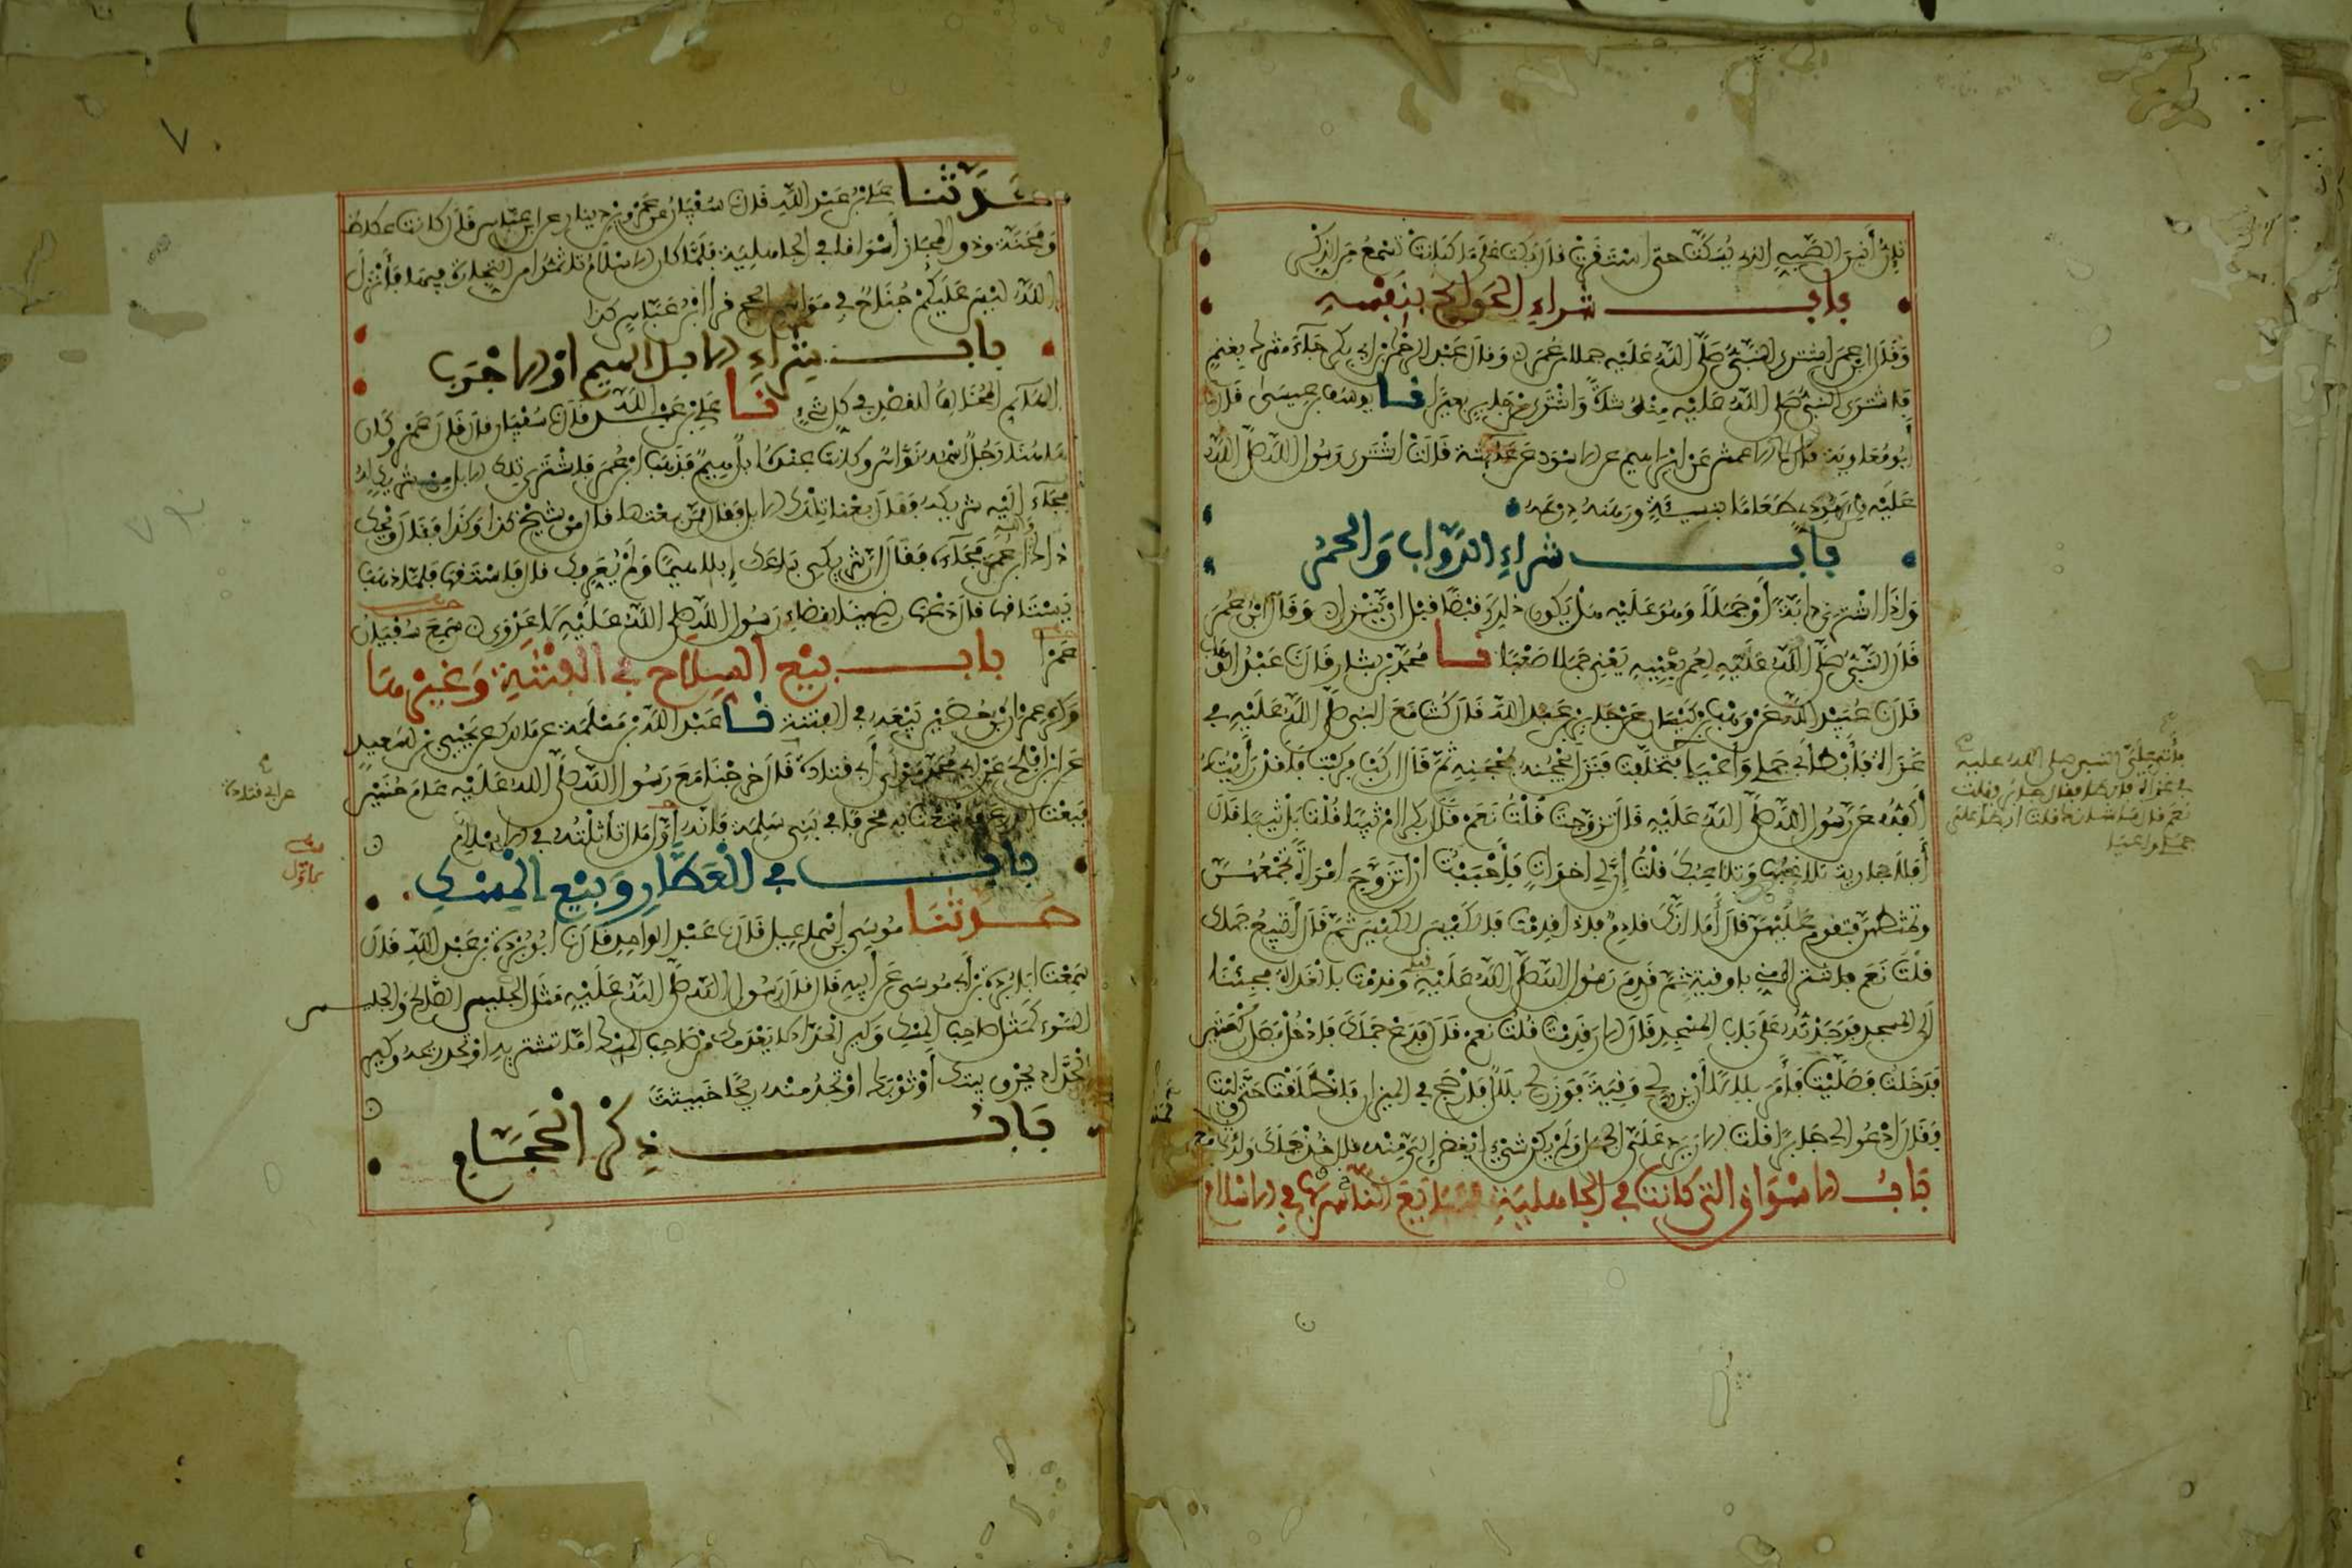 تئن أنين الصبي الذي يسكت حتى استقرت قال بكت على ما كانت تسمع من الذكر
باب شراء الحوائج بنفسه
وقال ابن عمر اشترى النبي صلى الله عليه جملا من عمر وقال عبد الرحمن بن أبي بكر جاء مشرك بغنم
فاشترى النبي صلى الله عليه منه شاة واشترى من جابر بعيرا نا يوسف بن عيسى قال نا
أبو معاوية قال نا الاعمش عن ابراهيم عن الاسود عن عائشة قالت اشترى رسول الله صلى الله
عليه من يهودي طعاما بنسيئة ورهنه درعه
باب شراء الدواب والحمر
واذا اشترى دابة أو جملا وهو عليه هل يكون ذلك قبضا قبل ان ينزل وقال ابن عمر
قال النبي صلى الله عليه لعمر بعنيه يعني جملا صعبا نا محمد بن بشار قال نا عبد الوهاب
قال نا عبيد الله عن وهب بن كيسان عن جابر بن عبد الله قال كنت مع النبي صلى الله عليه في
غزاة فأبطأ بي جملي وأعيا فتخلفت فنزل يحجنه بمحجنه ثم قال اركب فركبت فلقد رأيته
أكفه عن رسول الله صلى الله عليه قال تزوجت قلت نعم قال بكرا ام ثيبا قلت بل ثيبا قال
أفلا جارية تلاعبها وتلاعبك قلت إن لي اخوات فأحببت ان اتزوج امرأة تجمعهن
وتمشطهن وتقوم عليهن قال أما انك قادم فاذا قدمت فالكيس الكيس ثم قال أتبيع جملك
قلت نعم فاشتراه مني باوقية ثم قدم رسول الله صلى الله عليه قبلي وقدمت بالغداة فجئنا
الى المسجد فوجدته على باب المسجد قال الان قدمت قلت نعم قال فدع جملك فادخل فصل ركعتين
فدخلت فصليت فأمر بلالا أن يزن لي وقية فوزن لي بلال فأرجح في الميزان فانطلقت حتى وليت
وقال ادعوا لي جابرا قلت الان يرد علي الجمل ولم يكن شيء ابغض إلي منه قال خذ جملك ولك ثمنه
باب الاسواق التي كانت في الجاهلية فتبايع الناس بها في الاسلام
حدثنا علي بن عبد الله قال نا سفيان عن عمرو بن دينار عن ابن عباس قال كانت عكاظ
ومجنة وذو المجاز أسواقا في الجاهلية فلما كان الاسلام تأثموا من التجارة فيها فأنزل
الله ليس عليكم جناح في مواسم الحج قرأ ابن عباس كذا
باب شراء الابل الهيم او الاجرب
الهائم المخالف للقصد في كل شيء نا علي بن عبد الله قال نا سفيان قال قال عمرو كان
هاهنا رجل اسمه نواس وكانت عنده ابل هيم فذهب ابن عمر فاشترى تلك الابل من شريك له
فجاء اليه شريكه فقال بعنا تلك الابل فقال ممن بعتها قال من شيخ كذا وكذا فقال ويحك
ذاك والله ابن عمر فجاءه فقال ان شريكي باعك إبلا هيما ولم يعرفك قال فاستقها فلما ذهب
يستاقها قال دعها رضينا بقضاء رسول الله صلى الله عليه لا عدوى سمع سفيان
عمرا باب بيع السلاح في الفتنة وغيرها
وكره عمران بن حصين بيعه في الفتنة نا عبد الله بن مسلمة عن مالك عن يحيى بن سعيد
عن ابن افلح عن ابي محمد مولى ابي قتادة قال خرجنا مع رسول الله صلى الله عليه عام حنين
فبعت الدرع فابتعت به مخرفا في بني سلمة فانه أول مال تأثلته في الاسلام
باب في العطار وبيع المسك
حدثنا موسى بن اسماعيل قال نا عبد الواحد قال نا ابو بردة بن عبد الله قال
سمعت ابا بردة بن أبي موسى عن أبيه قال قال رسول الله صلى الله عليه مثل الجليس الصالح والجليس
السوء كمثل صاحب المسك وكير الحداد لا يعدمك من صاحب المسك اما تشتريه او تجد ريحه وكير
الحداد يحرق بيتك أو ثوبك او تجد منه ريحا خبيثة
باب ذكر الحجام
عن ابي قتادة